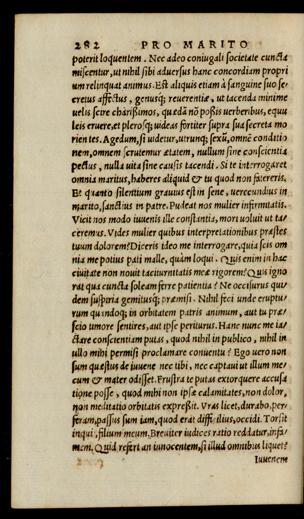 282 PRO MARITO
poterit loquentem. Nec adeo coniugali societate cuncta
miscentur, ut nihil sibi aduersus hanc concordiam propri
um relinquat animus. Est aliquis etiam à sanguine suo se-
cretus affectus, genusq; reuerentiæ, ut tacenda minime
uelis scire charissimos, quædā nō possis uerberibus, equu
leis eruere, et plerosq; uideas fortiter supra sua secreta mo
rientes. Agedum, si uidetur, utrunq; sexū, omnē conditio
nem, omnem scrutemur ætatem, nullum sine conscientia
pectus, nulla uita sine causis tacendi. Si te interrogaret
omnia maritus, haberes aliquid & tu quod non faterêris.
Et quanto silentium grauius est in sene, uerecundius in
marito, sanctius in patre. Pudeat nos mulier infirmitatis.
Vicit nos modo iuuenis ille constantia, mori uoluit ut ta-
ceremus. Vides mulier quibus interpretationibus præstes
tuum dolorem? Diceris ideo me interrogare, quia scis om
nia me potius pati malle, quàm loqui. Quis enim in hac
ciuitate non nouit taciturnitatis meæ rigorem? Quis igno
rat qua cuncta soleam ferre patientia? Ne occisurus qui-
dem suspiria gemitusq; præmisi. Nihil feci unde eruptu-
rum quandoq; in orbitatem patris animum, aut tu præ-
scio umore sentires, aut ipse periturus. Hanc nunc me ia-
ctare conscientiam putas, quod nihil in publico, nihil in
ullo mihi permisi proclamare conuentu? Ego uero non
sum questus de iuuene nec tibi, nec captaui ut illum me-
cum & mater odisset. Frustra te putas extorquere accusa
tione posse, quod mihi non ipsæ calamitates, non dolor,
non meditatio orbitatis expressit. Vras licet, durabo, per-
feram, passus sum iam, quod erat difficilius, occidi. Torsit
inqui, filium meum. Breuiter iudices ratio reddatur, infa-
mem. Quid refert an innocentem, si illud omnibus liquet?
Iuuenem